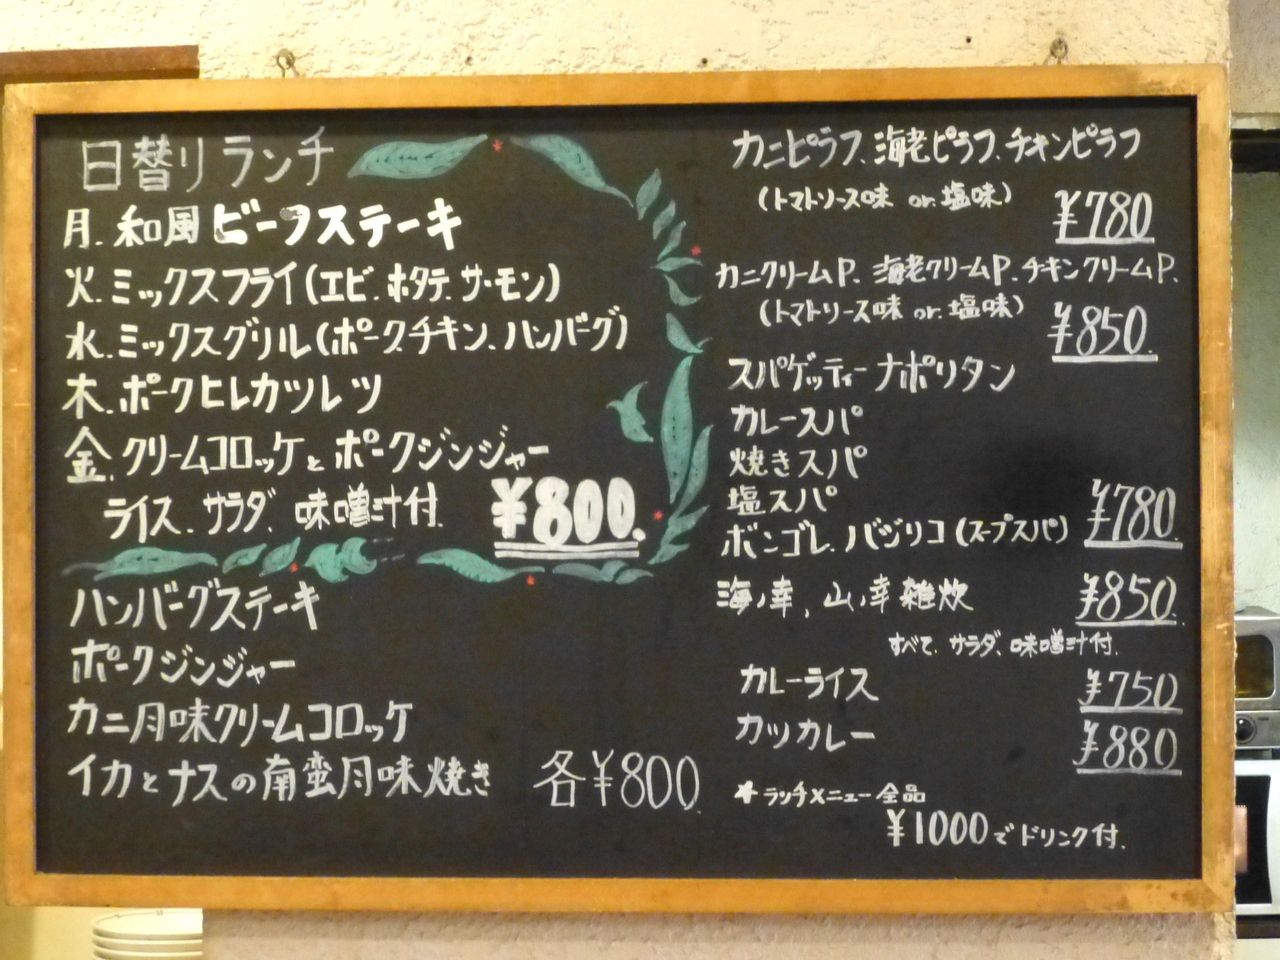 日替りランチ
月.和風ビーフステーキ
火.ミックスフライ(エビ.ホタテ.サーモン)
水.ミックスグリル(ポーク.チキン.ハンバーグ)
木.ポークヒレカツレツ
金.クリームコロッケとポークジンジャー
ライス.サラダ、味噌汁付. ¥800.
ハンバーグステーキ
ポークジンジャー
カニ風味クリームコロッケ
イカとナスの南蛮風味焼き 各¥800.
カニピラフ、海老ピラフ、チキンピラフ
(トマトソース味 or 塩味)
¥780
カニクリームP. 海老クリームP.チキンクリームP.
(トマトソース味 or 塩味)
¥850.
スパゲッティーナポリタン
カレースパ
焼きスパ
塩スパ
ボンゴレ.バジリコ(スープスパ) ¥780
海ノ幸,山ノ幸雑炊 ¥850.
すべて.サラダ、味噌汁付.
カレーライス ¥750
カツカレー ¥880
*ランチメニュー全品
¥1000でドリンク付.